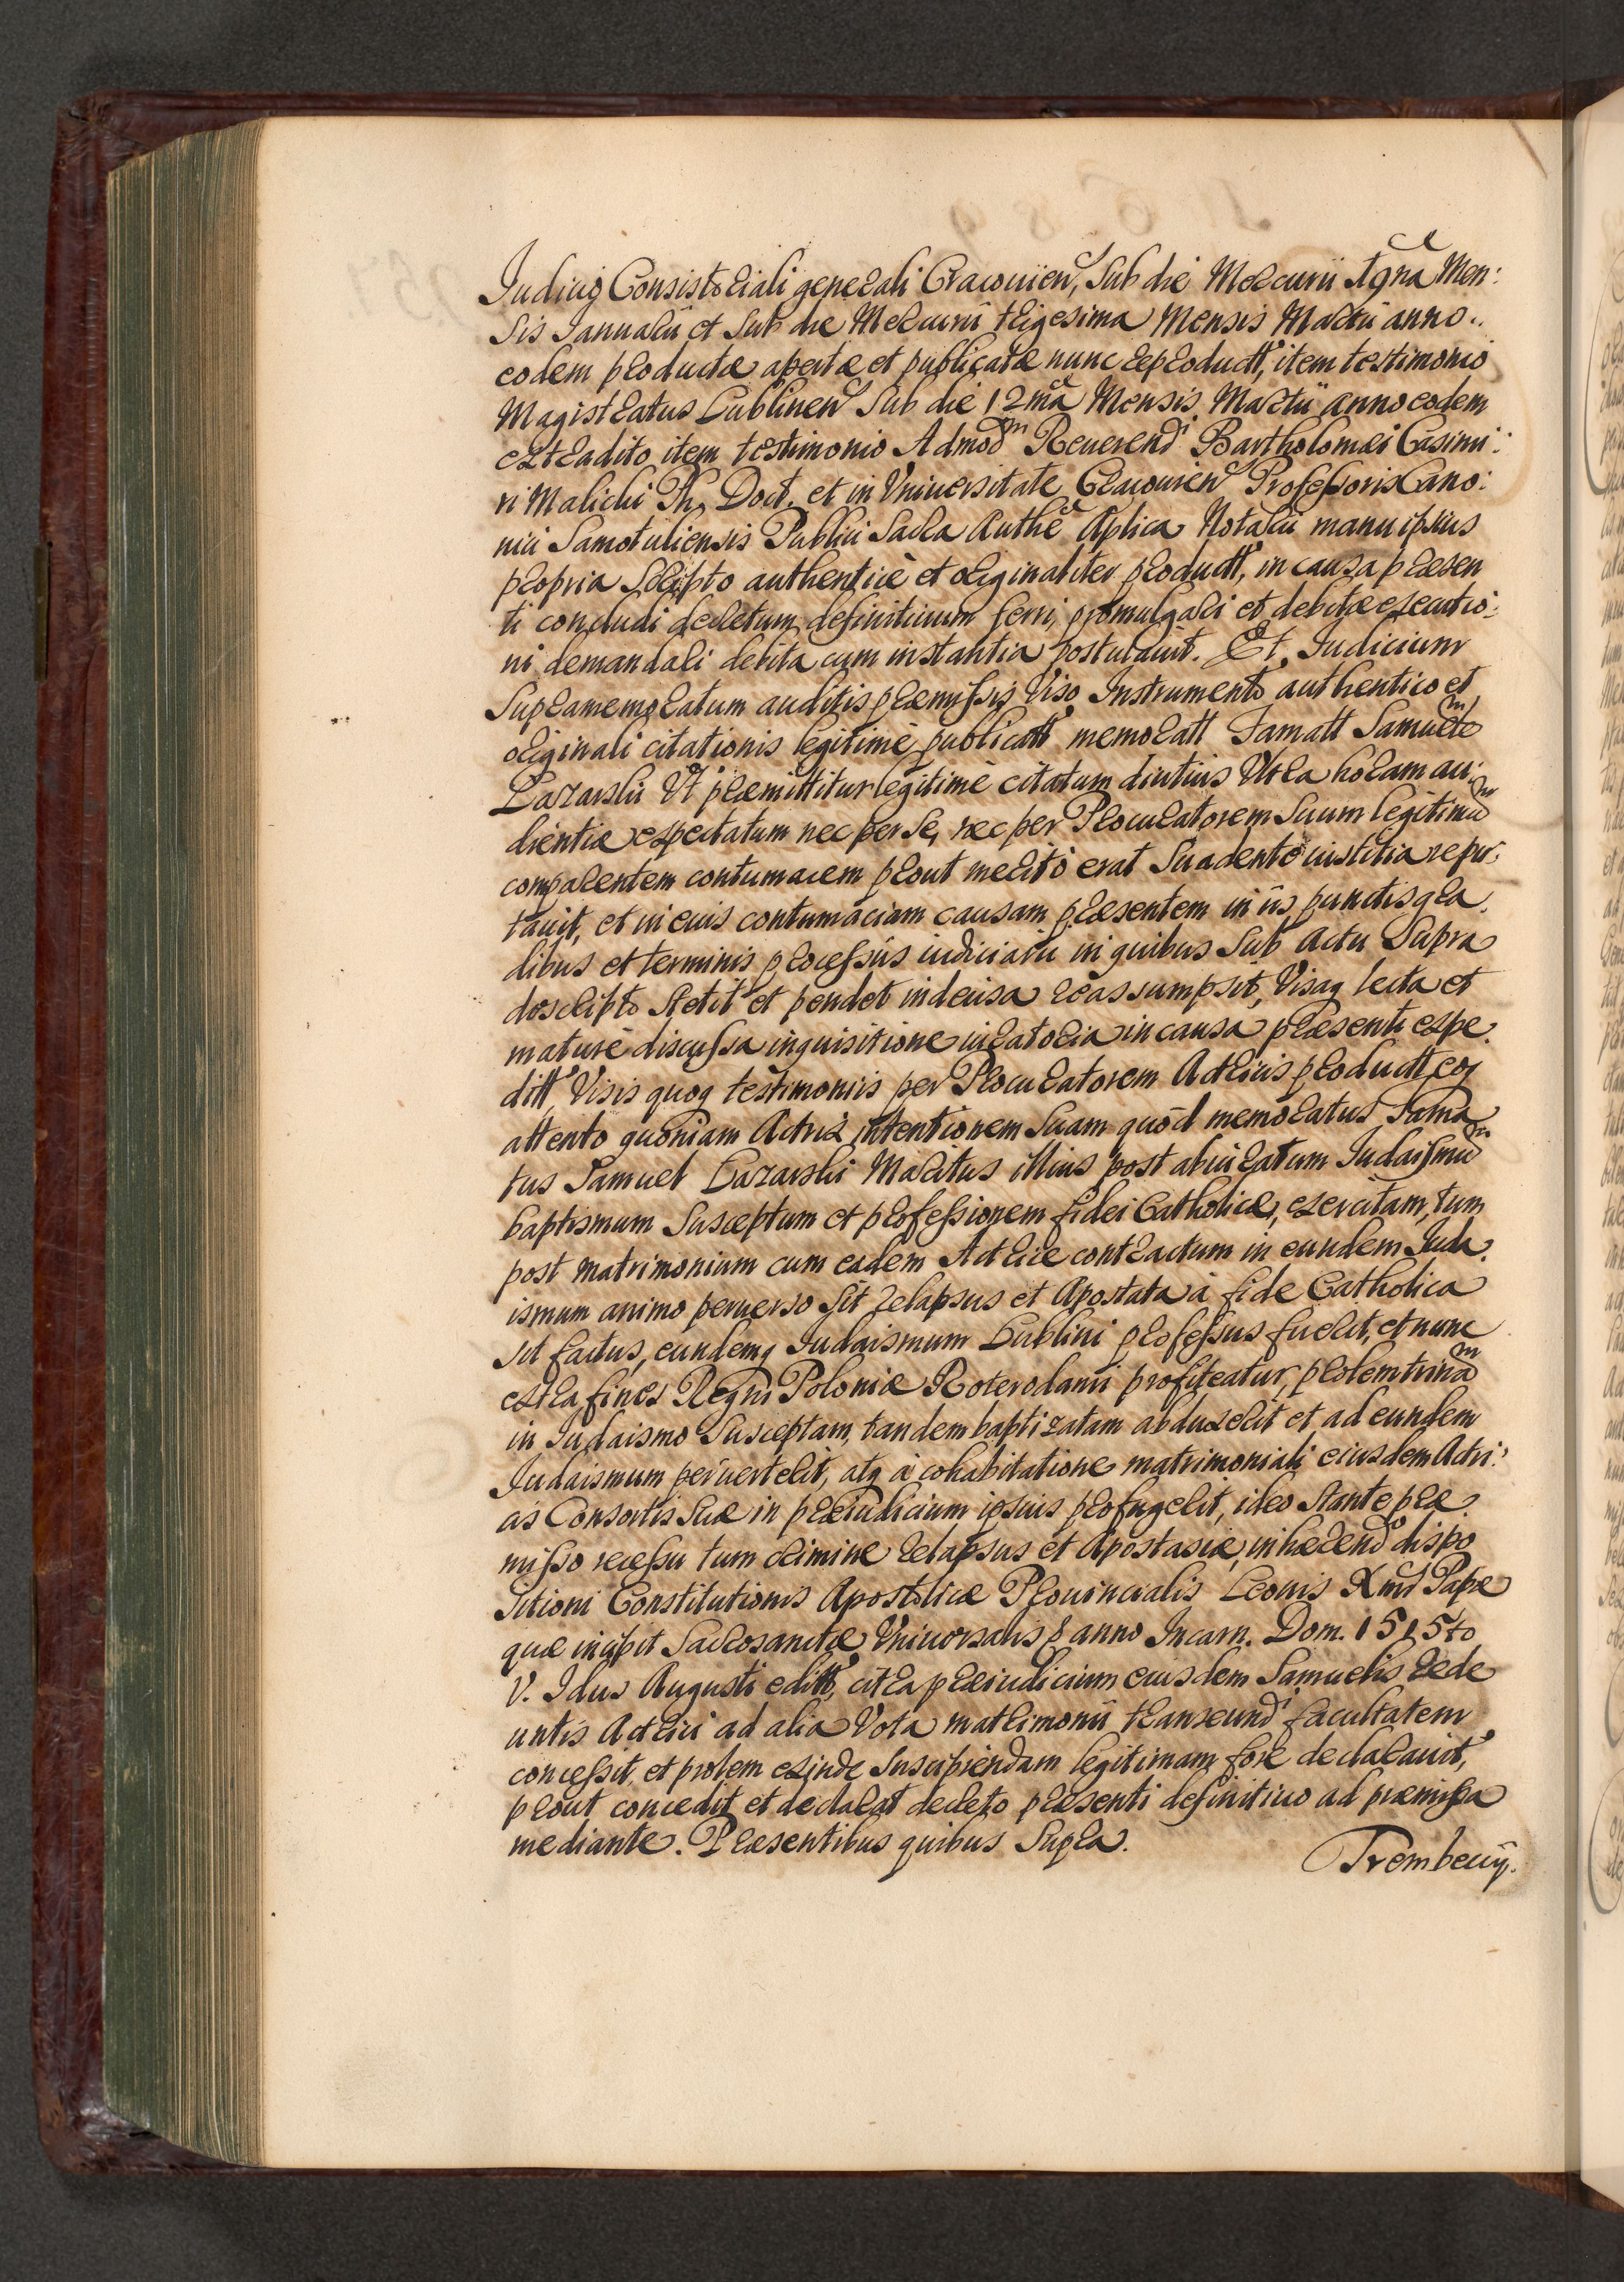 Judicio Consistoriali generali Cracouien, Sub die Mercurii Men:
sis Januarii et Sub die Mercurii trigesima Mensis Martii anno..
eodem productæ apertæ et publicatæ nunc reproductt, item testimonio
Magistratus Lublinen Sub die 12mâ Mensis Martii anno eodem
extradito item testimonio Admodm Reuerendi Bartholomæi Casimi:
ri Malicki Ph. Doct. et in Vniuersitate Cracouien Professoris Cano:
nici Samotuliensis Publici Sacra Authe Aplica Notarii manu ipsius
propria Scripto authenticè et originaliter productt, in causa præsen
ti concludi decretum definitiuum ferri, promulgari et debitæ executio:
ni demandari debita cum instantia postulauit. Et Judicium
Supramemoratum auditis præmissis Viso Instrumento authentico et
originali citationis legitimè publicatt memoratt Famatt Samuelem
Lazarski Vt præmittitur legitimè citatum diutius Vltra horam au:
dientiæ expectatum nec per Se, nec per Procuratorem Suum legitimum
comparentem contumacem prout meritò erat Suadente iustitia repu:
tauit, et in euis contumaciam causam præsentem in iis punctis gra.
dibus et terminis processus iudiciarii in quibus Sub Actu Supra
doscripto Stetit et pendet indecisa reassumpsit, Visaq lecta et
maturè discussa inquisitione iuratoria in causa præsenti expe.
ditt, Visis quoq testimoniis per Procuratorem Actricis productt eoq
attento quoniam Actrix intentionem Suam quòd memoratus Fama
tus Samuel Lazarski Maritus illius post abiuratum Judaismum
baptismum Susceptum et professionem fidei Catholicæ, exercitam, tum
post matrimonium cum eadem Actrice contractum in eundem Juda.
ismum animo peruerso Sit relapsus et Apostata à fide Catholica
sit factus, eundemq Judaismum Lublini professus fuerit, et nunc
extra fines Regni Poloniæ Roterodami profiteatur, prolem trinam
in Judaismo Susceptam, tandem baptizatam abduxerit et ad eundem
Judaismum peruerterit, atq à cohabitatione matrimoniali eiusdem Actri:
cis Consortis Suæ in præiudicium ipsius profugerit, ideo Stante præ
misso recessu tum crimine relapsus et Apostasiæ, inhærendo dispo
Sitioni Constitutionis Apostolicæ Prouincialis Leonis Papæ
quæ incipit Sacrosanctæ Vniuersalis anno Incarn. Dom. 1515to
V. Idus Augusti editt, citra præiudicium eiusdem Samuelis rede
untis Actrici ad alia Vota matrimonii transeundi facultatem
concessit, et prolem exinde Suscipiendam legitimam fore declarauit,
prout concedit et declarat decreto præsenti definitiuo ad præmissa
mediante. Præsentibus quibus Supra.
Trembecuÿ.